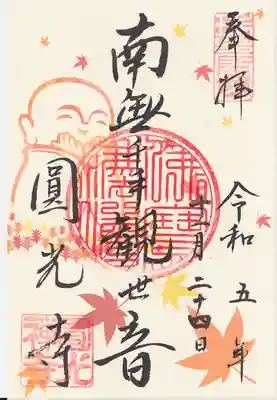 奉拝
令和五年
十一月二十四日
南無千手觀世音
圓光寺